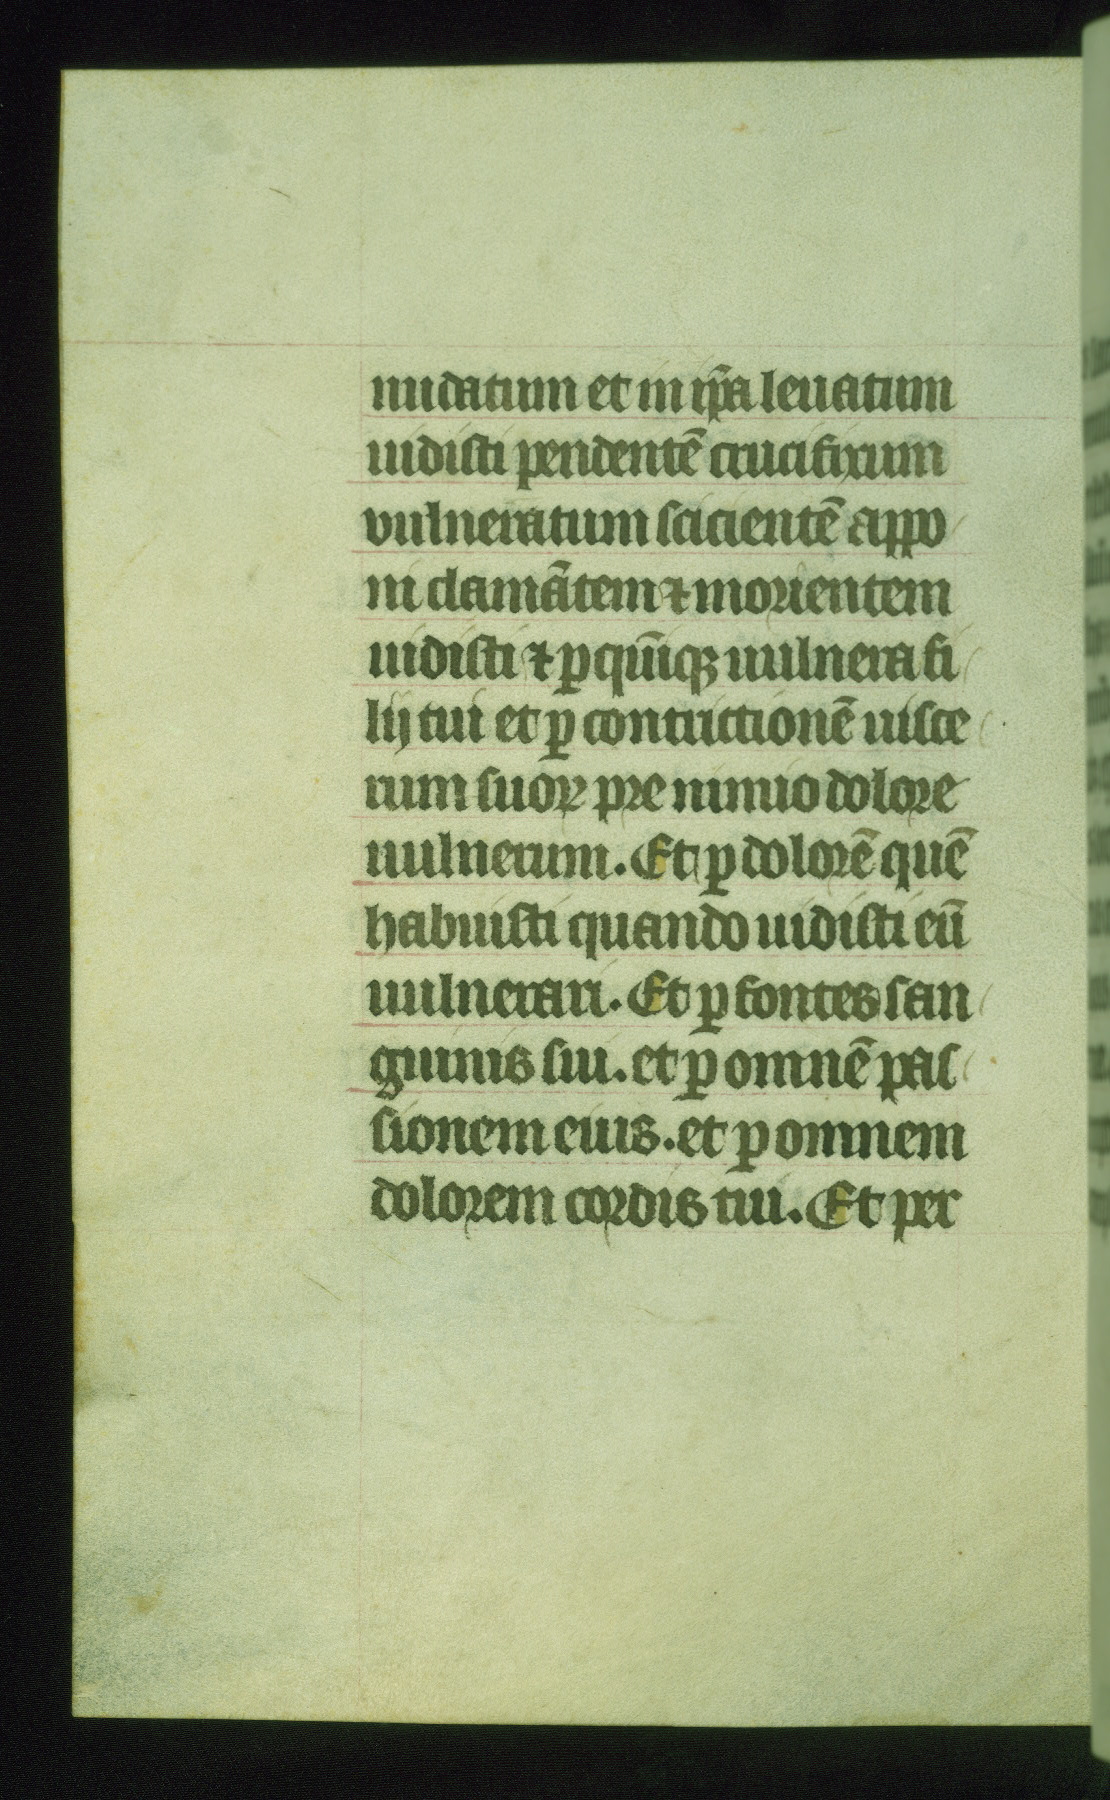 nudatum et in ip̄a leuatum
uidisti pendentē crucifixum
vulneratum scicientē appo
ni clamātem ⁊ morientem
uidisti ⁊ ꝑ quīqꝫ uulnera fi
lij tui et ꝑ contrictionē uisce
rum suoꝝ pre nimio dolore
uulnerum. Et ꝑ dolorē quē
habuisti quando uidisti eū
uulnerari. Et ꝑ fontes san
guinis sui. et ꝑ omnē pas
sionem eius. et ꝑ omnem
dolorem cordis tui. Et per